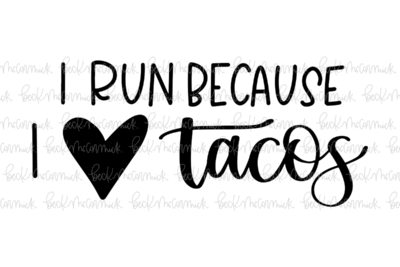 I RUN BECAUSE
I ♥ tacos